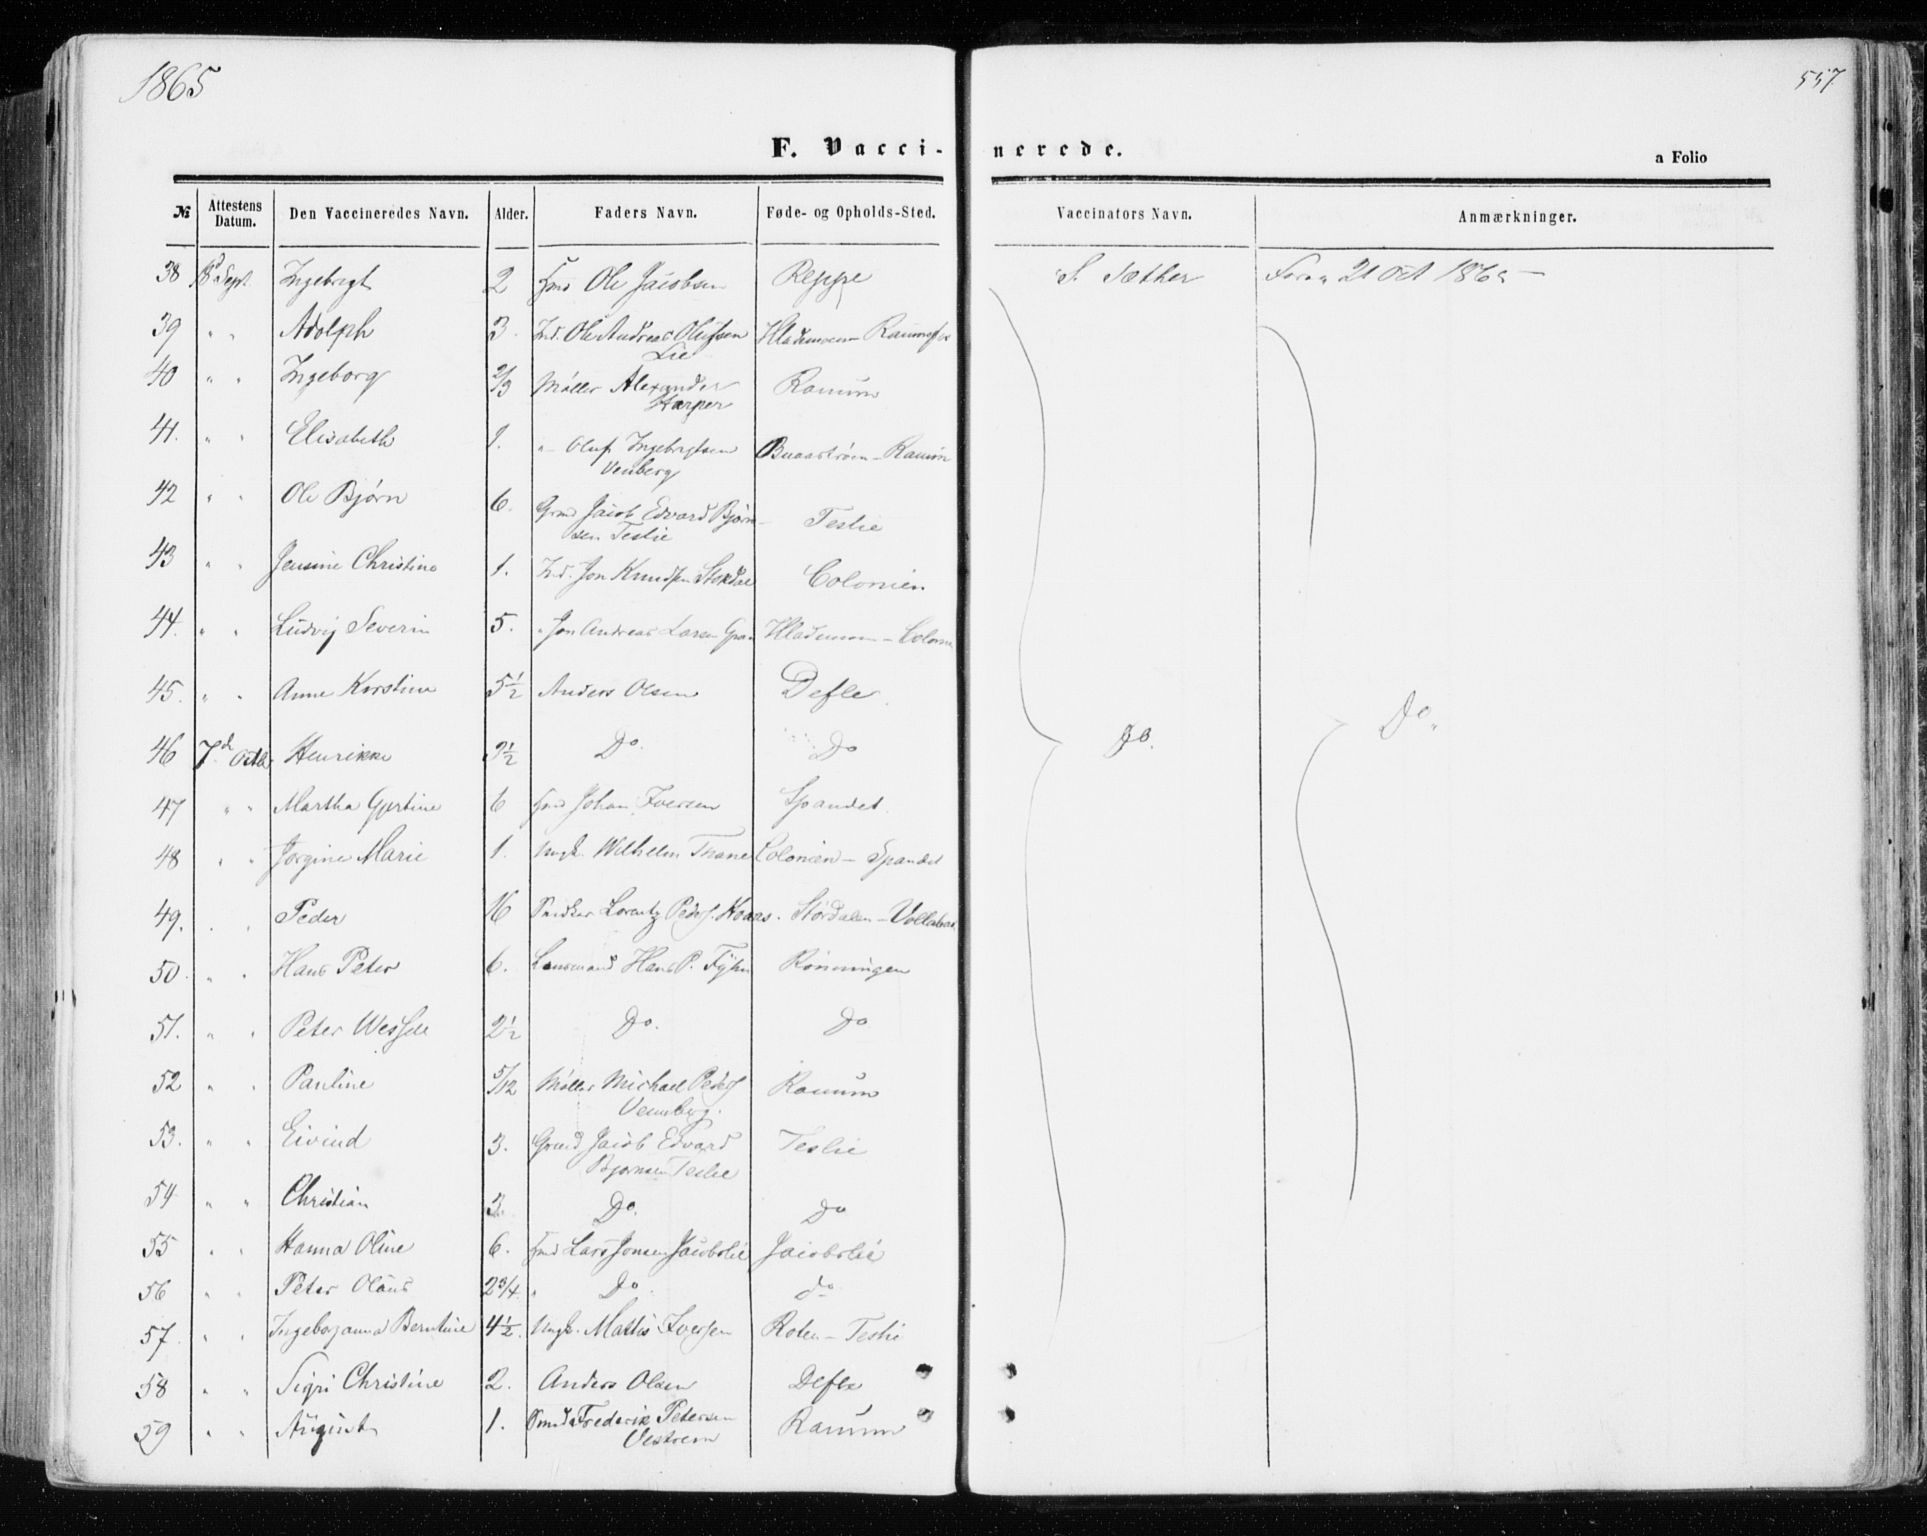 1865
557
F. Vaccinerede.
a Folio
№ Attestens Datum. Den Vaccineredes Navn. Alder. Faders Navn. Føde- og Opholds-Sted. Vaccinators Navn. Anmærkninger.
38 Sept. Ingebrigt 2 Ole Jacobsen Reppe S. Sæther 21 Oct 1865 —
39 " " Adolph 3. Ind. Ole Andreas Olufsen Hlademoen
Lie
40 " " Ingeborg 2/3 Møller Alexander Ranum
Harper
41. " " Elisabeth 1. " Oluf Ingebrigtsen Ranum
Venberg
42 " " Ole Bjørn 6. Grmd Jacob Edvard Bjørn- Teslie
sen Teslie
43 " " Jensine Christine 1. Ind. Jon Knudsen Stokdal Colonien
44. " " Ludvig Severin 5. " Jon Andreas Larsen Hlademoen - Colonie
45. " " Anne Kirstine 5½ Anders Olsen Defle
46 7d Octb Henrikke 3½ Do. Do Do. Do "
47 " " Martha Gjertine 6 Johan Iversen Spandet.
48 " " Jørgine Marie 1. Ungk. Wilhelm Thane Colonien - Spandet
49. " " Peder 16 Snidker Lorentz Peders. Størdalen - Vollabak
50. " " Hans Peter 6. Lensmand Hans P. Fyhn Rønningen
51. " " Peter Wessel 2½ Do. Do
52 " " Pauline 5/12 Møller Michael Peders Ranum
Vennberg.
53. " " Eivind 3. Grmd Jacob Edvard Teslie
Bjørnsen Teslie
54 " " Christian 3. Do. Do
55 " " Hanna Oline 6. Lars Jonsen Jacobslie Jacobslie
56 " " Peter Olaus 2¾. " Do. do
57. " " Ingeborganna Berntine 4½. Ungk. Mattis Iversen Roten - Teslie
58 " " Sigri Christine 2. Anders Olsen Defle
59 " " August 1. Frederik Petersen Ranum